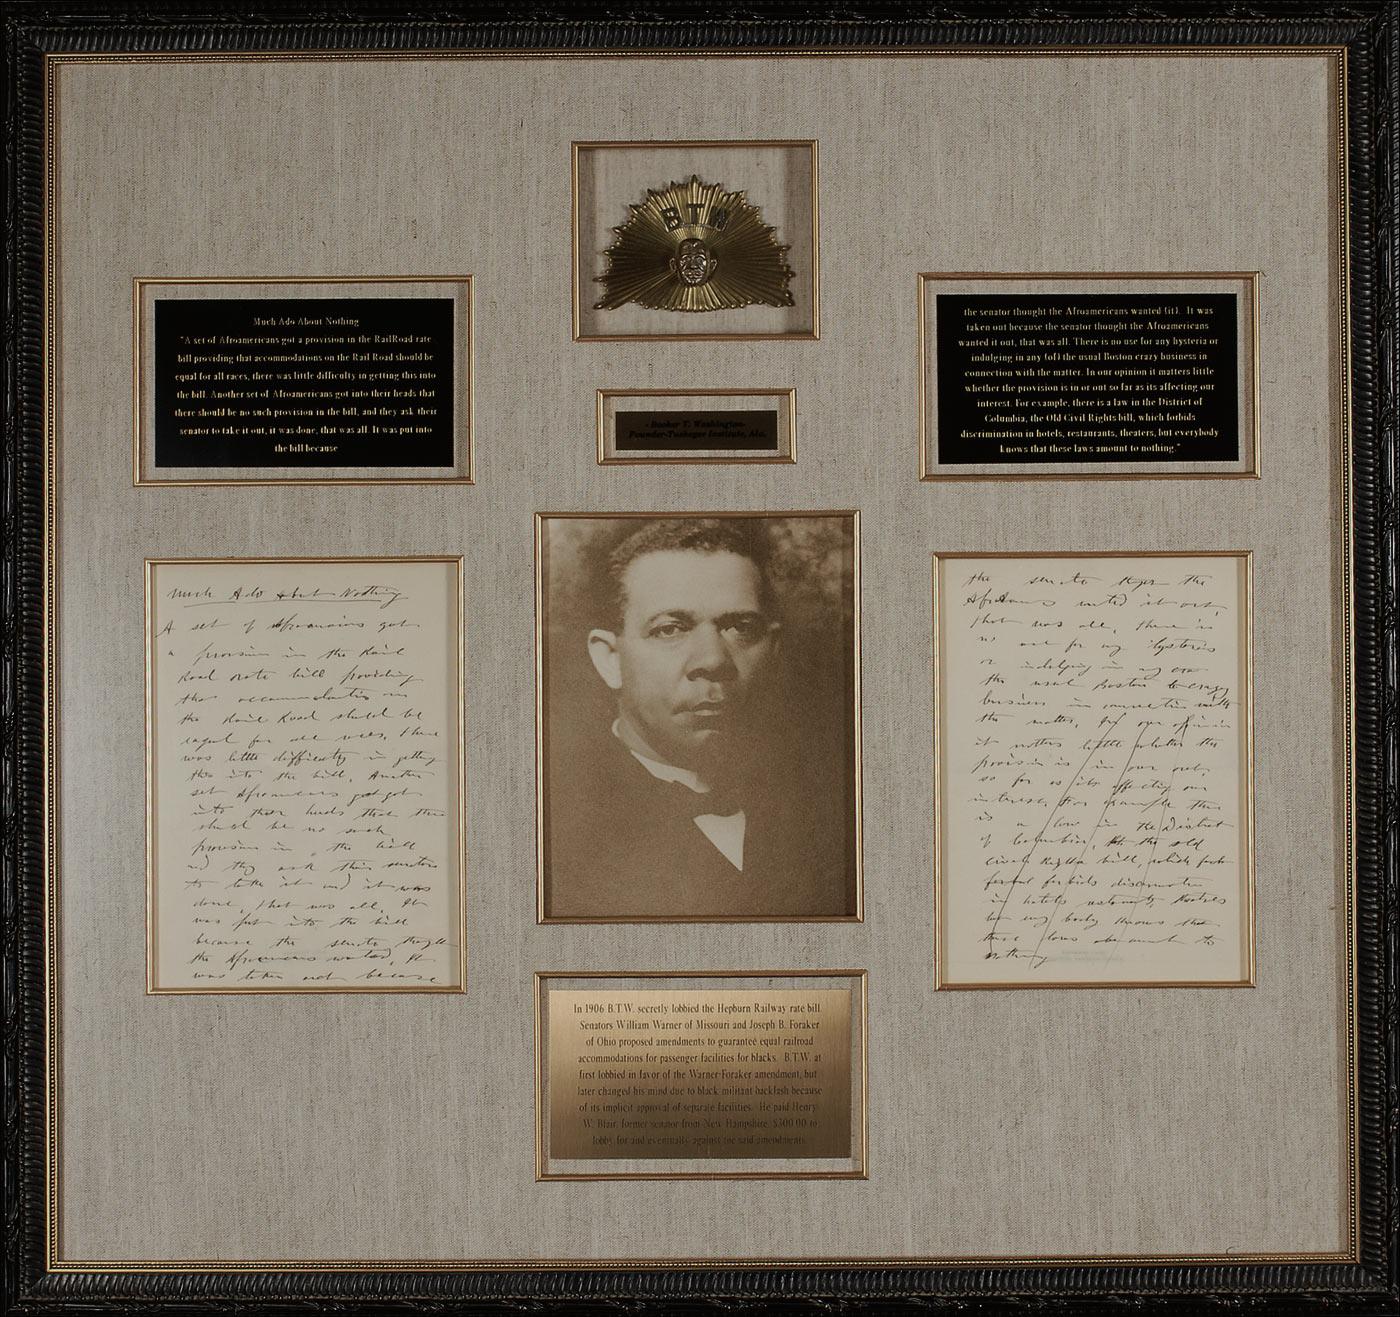 BTW
Much Ado About Nothing
"A set of Afroamericans got a provision in the RailRoad rate
bill providing that accommodations on the Rail Road should be
equal for all races, there was little difficulty in getting this into
the bill. Another set of Afroamericans got into their heads that
there should be no such provision in the bill, and they ask their
senator to take it out, it was done, that was all. It was put into
the bill because
the senator thought the Afroamericans wanted (it). It was
taken out because the senator thought the Afroamericans
wanted it out, that was all. There is no use for any hysteria or
indulging in any (of) the usual Boston crazy business in
connection with the matter. In our opinion it matters little
whether the provision is in or out so far as its affecting our
interest. For example, there is a law in the District of
Columbia, the Old Civil Rights bill, which forbids
discrimination in hotels, restaurants, theaters, but everybody
knows that these laws amount to nothing."
- Booker T. Washington-
Founder-Tuskegee Institute, Ala.
Much Ado about Nothing
A set of Afroamericans got
a provision in the Rail
Road rate bill providing
that accommodations on
the Rail Road should be
equal for all races, there
was little difficulty in getting
this into the bill. Another
set Afroamericans got got
into their heads that there
should be no such
provision in the bill
and they ask their senators
to take it and it was
done, that was all. It
was put into the bill
because the senator thought
the Afroamericans wanted, It
was taken out because
the senator the
wanted it out,
that was all, there is
no use for any hysteria
or indulging in any
the usual Boston crazy
business in connection with
the matter. In our opinion
it matters little whether the
provision is in or out,
so far as its affecting our
interest, For example there
is a law in the District
of Columbia, the old
Civil Rights bill, which
forbids discrimination
in hotels restaurants,
but every body knows that
these laws amount to
nothing
In 1906 B.T.W. secretly lobbied the Hepburn Railway rate bill.
Senators William Warner of Missouri and Joseph B. Foraker
of Ohio proposed amendments to guarantee equal railroad
accommodations for passenger facilities for blacks. B.T.W. at
first lobbied in favor of the Warner-Foraker amendment, but
later changed his mind due to black militant backlash because
of its implicit approval of separate facilities. He paid Henry
W. Blair, former senator from New Hampshire, $300.00 to
lobby for and eventually against the said amendments.